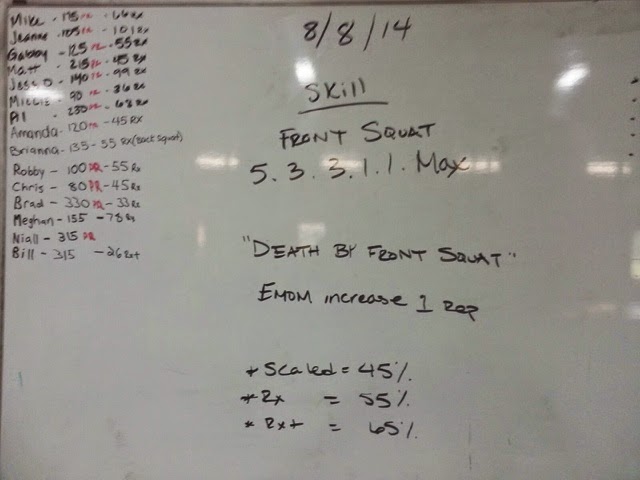 Mike - 175 PR - 66 Rx
Jeanne - 105 PR - 101 Rx
Gabby - 125 PR - 55 Rx
Matt - 215 PR - 45 Rx
Jess D - 140 PR - 99 Rx
- 90 PR - 36 Rx
Al - 230 PR - 68 Rx
Amanda - 120 PR - 45 RX
Brianna - 135 - 55 Rx (Back Squat)
Robby - 100 PR - 55 Rx
Chris - 80 PR - 45 Rx
Brad - 330 PR - 33 Rx
Meghan - 155 - 78 Rx
Niall - 315 PR
Bill - 315 - 26 Rx+
8/8/14
Skill
FRONT SQUAT
5.3.3.1.1. Max
"DEATH BY FRONT SQUAT"
EMOM increase 1 Rep
* Scaled = 45%
* Rx = 55%
* Rx+ = 65%